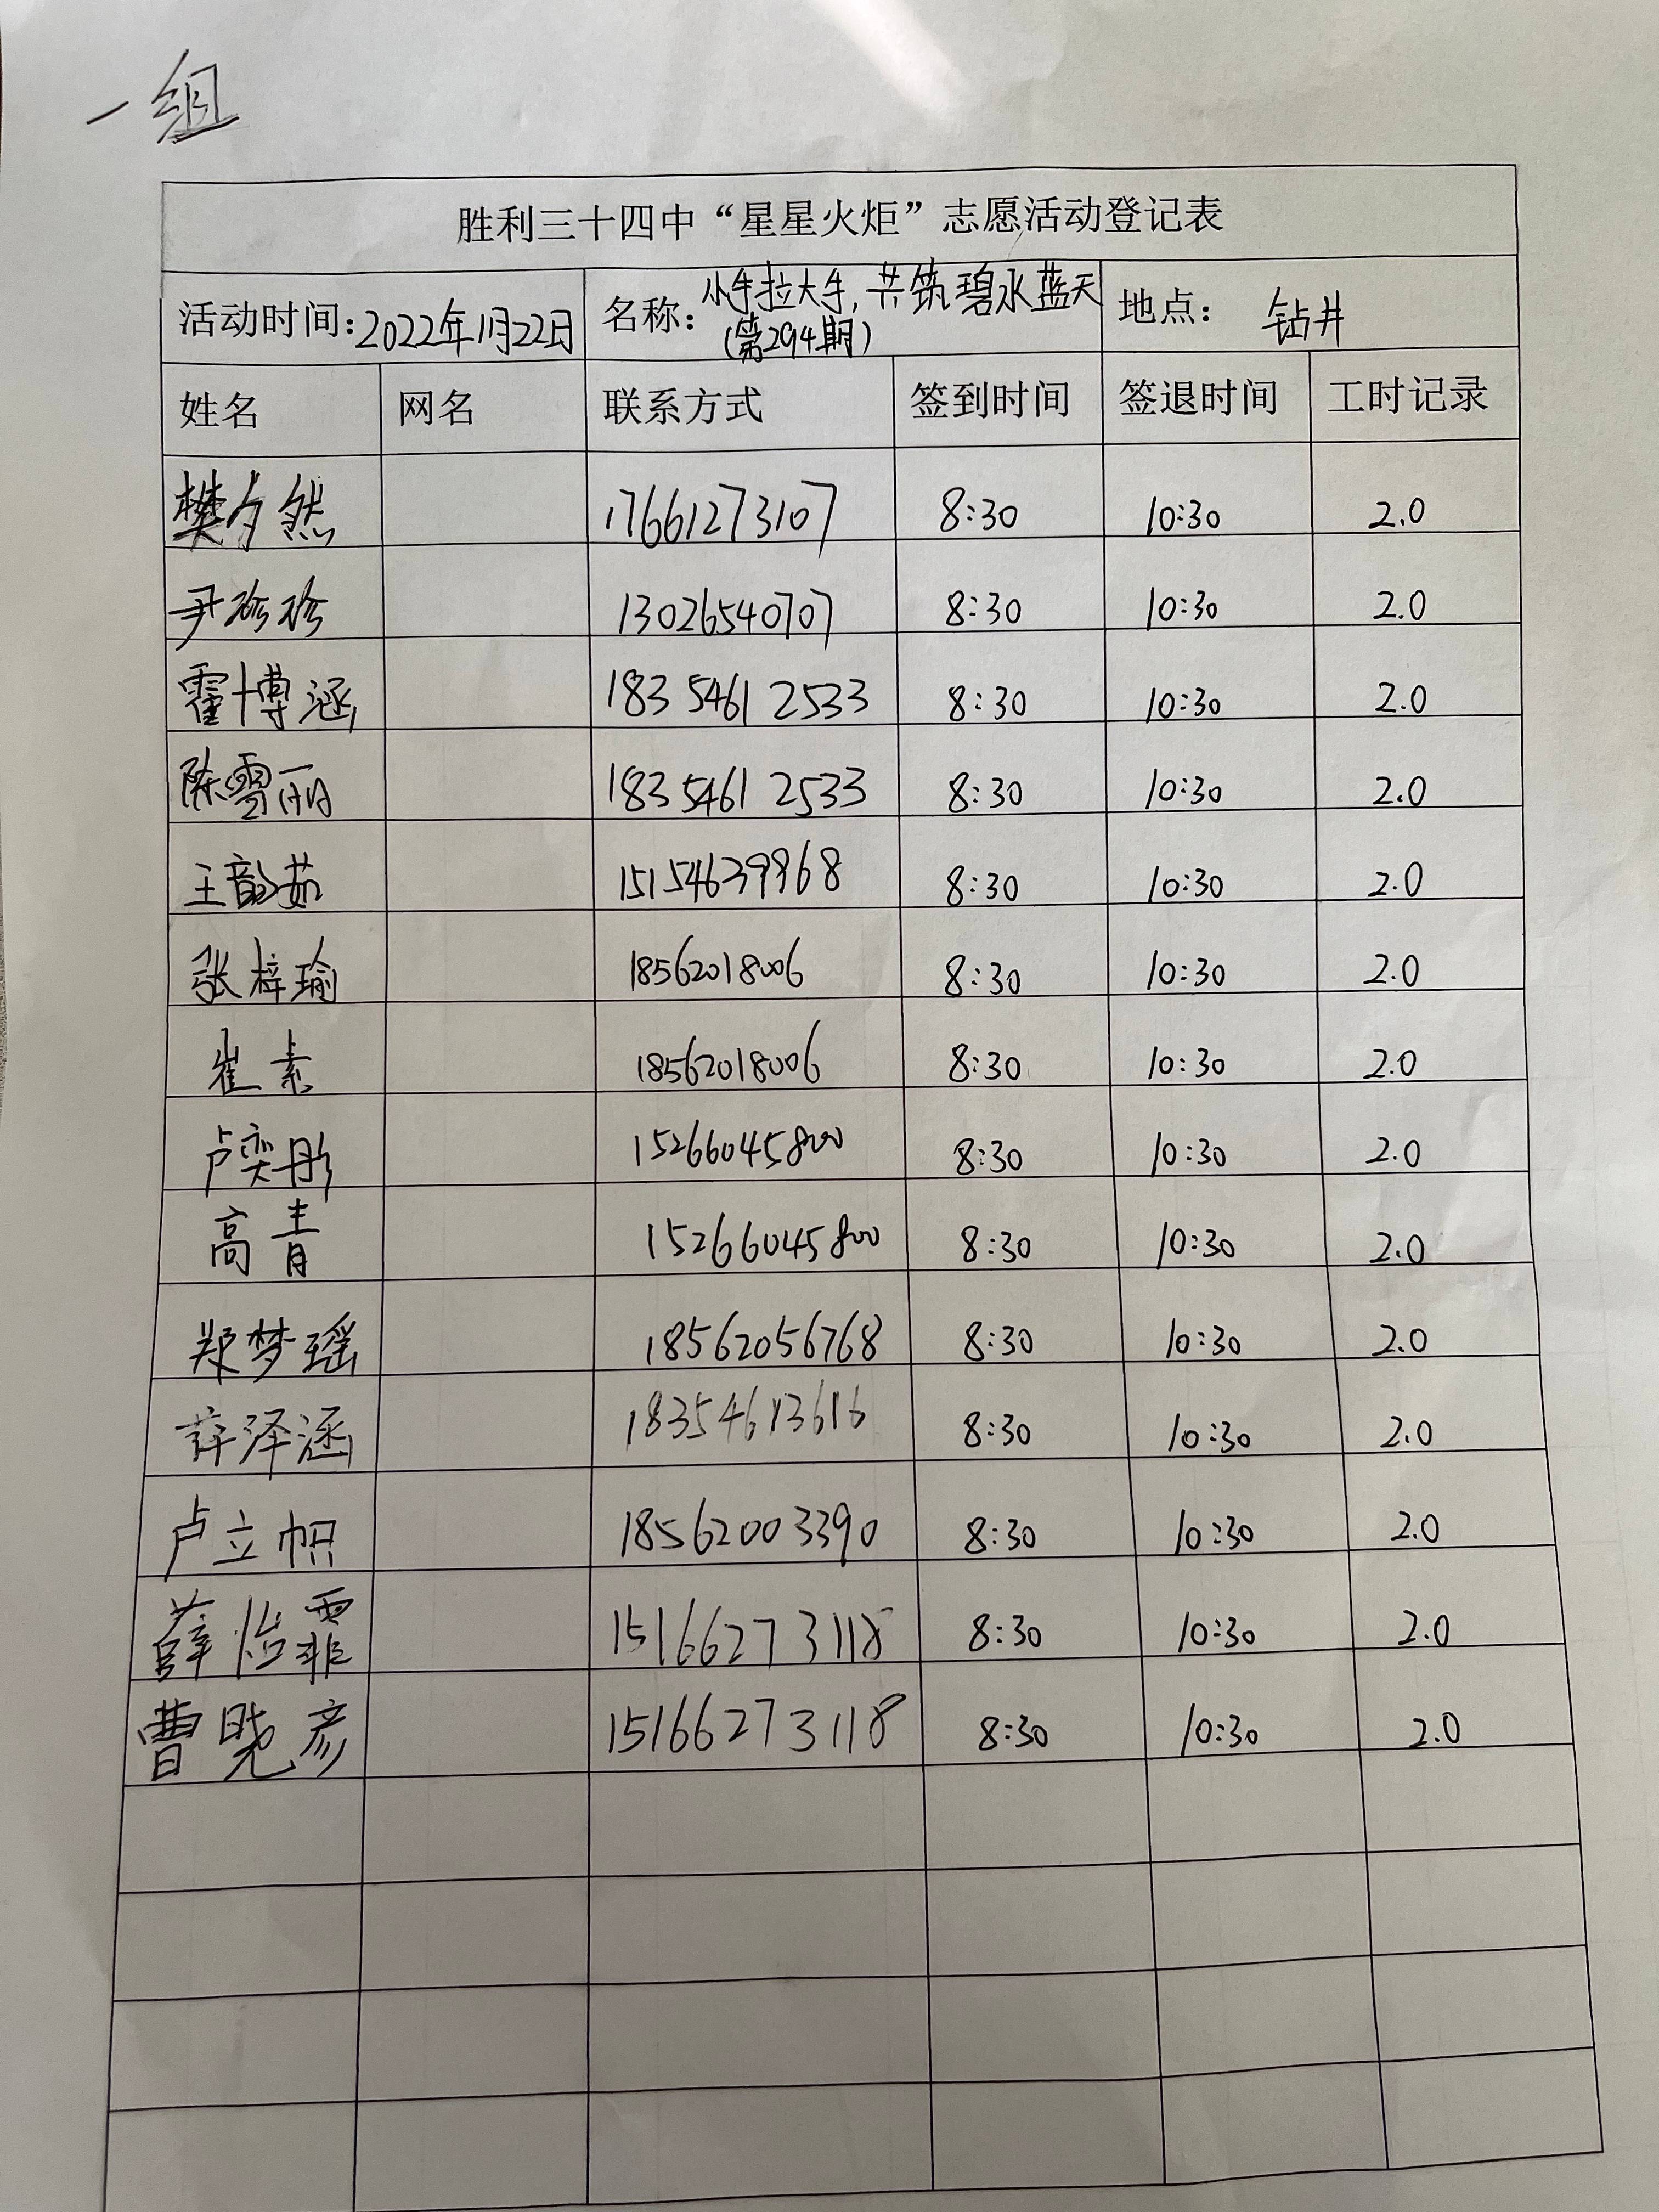 一组
胜利三十四中“星星火炬”志愿活动登记表
活动时间:2022年11月22日 名称:小手拉大手,共筑碧水蓝天(第294期) 地点: 钻井
姓名 网名 联系方式 签到时间 签退时间 工时记录
樊夕然 17661273107 8:30 10:30 2.0
尹珍珍 13026540707 8:30 10:30 2.0
霍博涵 18354612533 8:30 10:30 2.0
陈雪丽 18354612533 8:30 10:30 2.0
王韵茹 8:30 10:30 2.0
张梓瑜 18562018006 8:30 10:30 2.0
崔素 18562018006 8:30 10:30 2.0
卢奕彤 15266045800 8:30 10:30 2.0
高青 15266045800 8:30 10:30 2.0
郑梦瑶 18562056768 8:30 10:30 2.0
薛泽涵 18354613616 8:30 10:30 2.0
卢立帜 18562003390 8:30 10:30 2.0
薛怡霏 15166273118 8:30 10:30 2.0
曹晓彦 15166273118 8:30 10:30 2.0